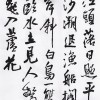 江頭落日照平
沙潮退漁船閣
岸斜白鳥一雙
臨水立見人驚
起入蘆花